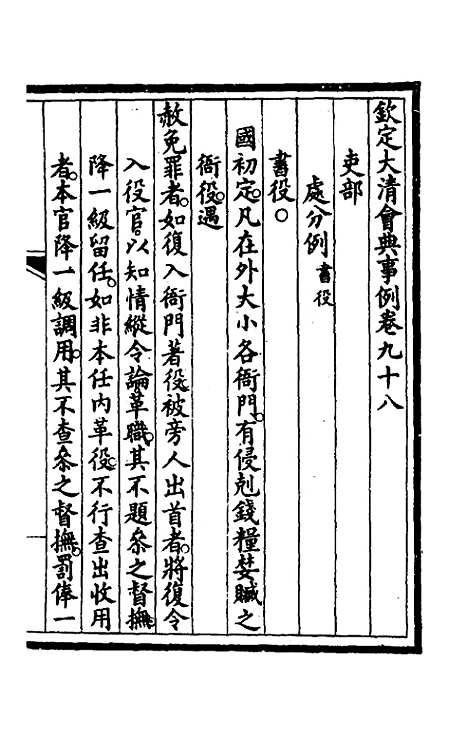 欽定大清會典事例卷九十八
吏部
處分例書役
書役○
國初定。凡在外大小各衙門。有侵剋錢糧婪贓之
衙役。遇
赦免罪者。如復入衙門著役。被旁人出首者。將復令
入役官以知情縱令論革職。其不題叅之督撫
降一級留任。如非本任內革役。不行查出收用
者。本官降一級調用。其不查叅之督撫。罰俸一